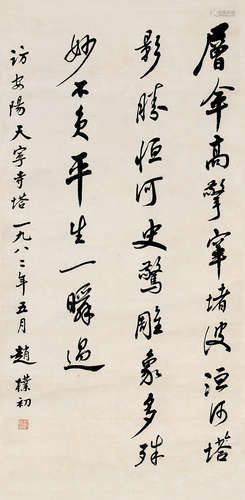 層傘高擎窣堵波洹河塔
影勝恒河更驚雕象多殊
妙不負平生一瞬過
訪安陽天寧寺塔一九八二年五月 趙樸初